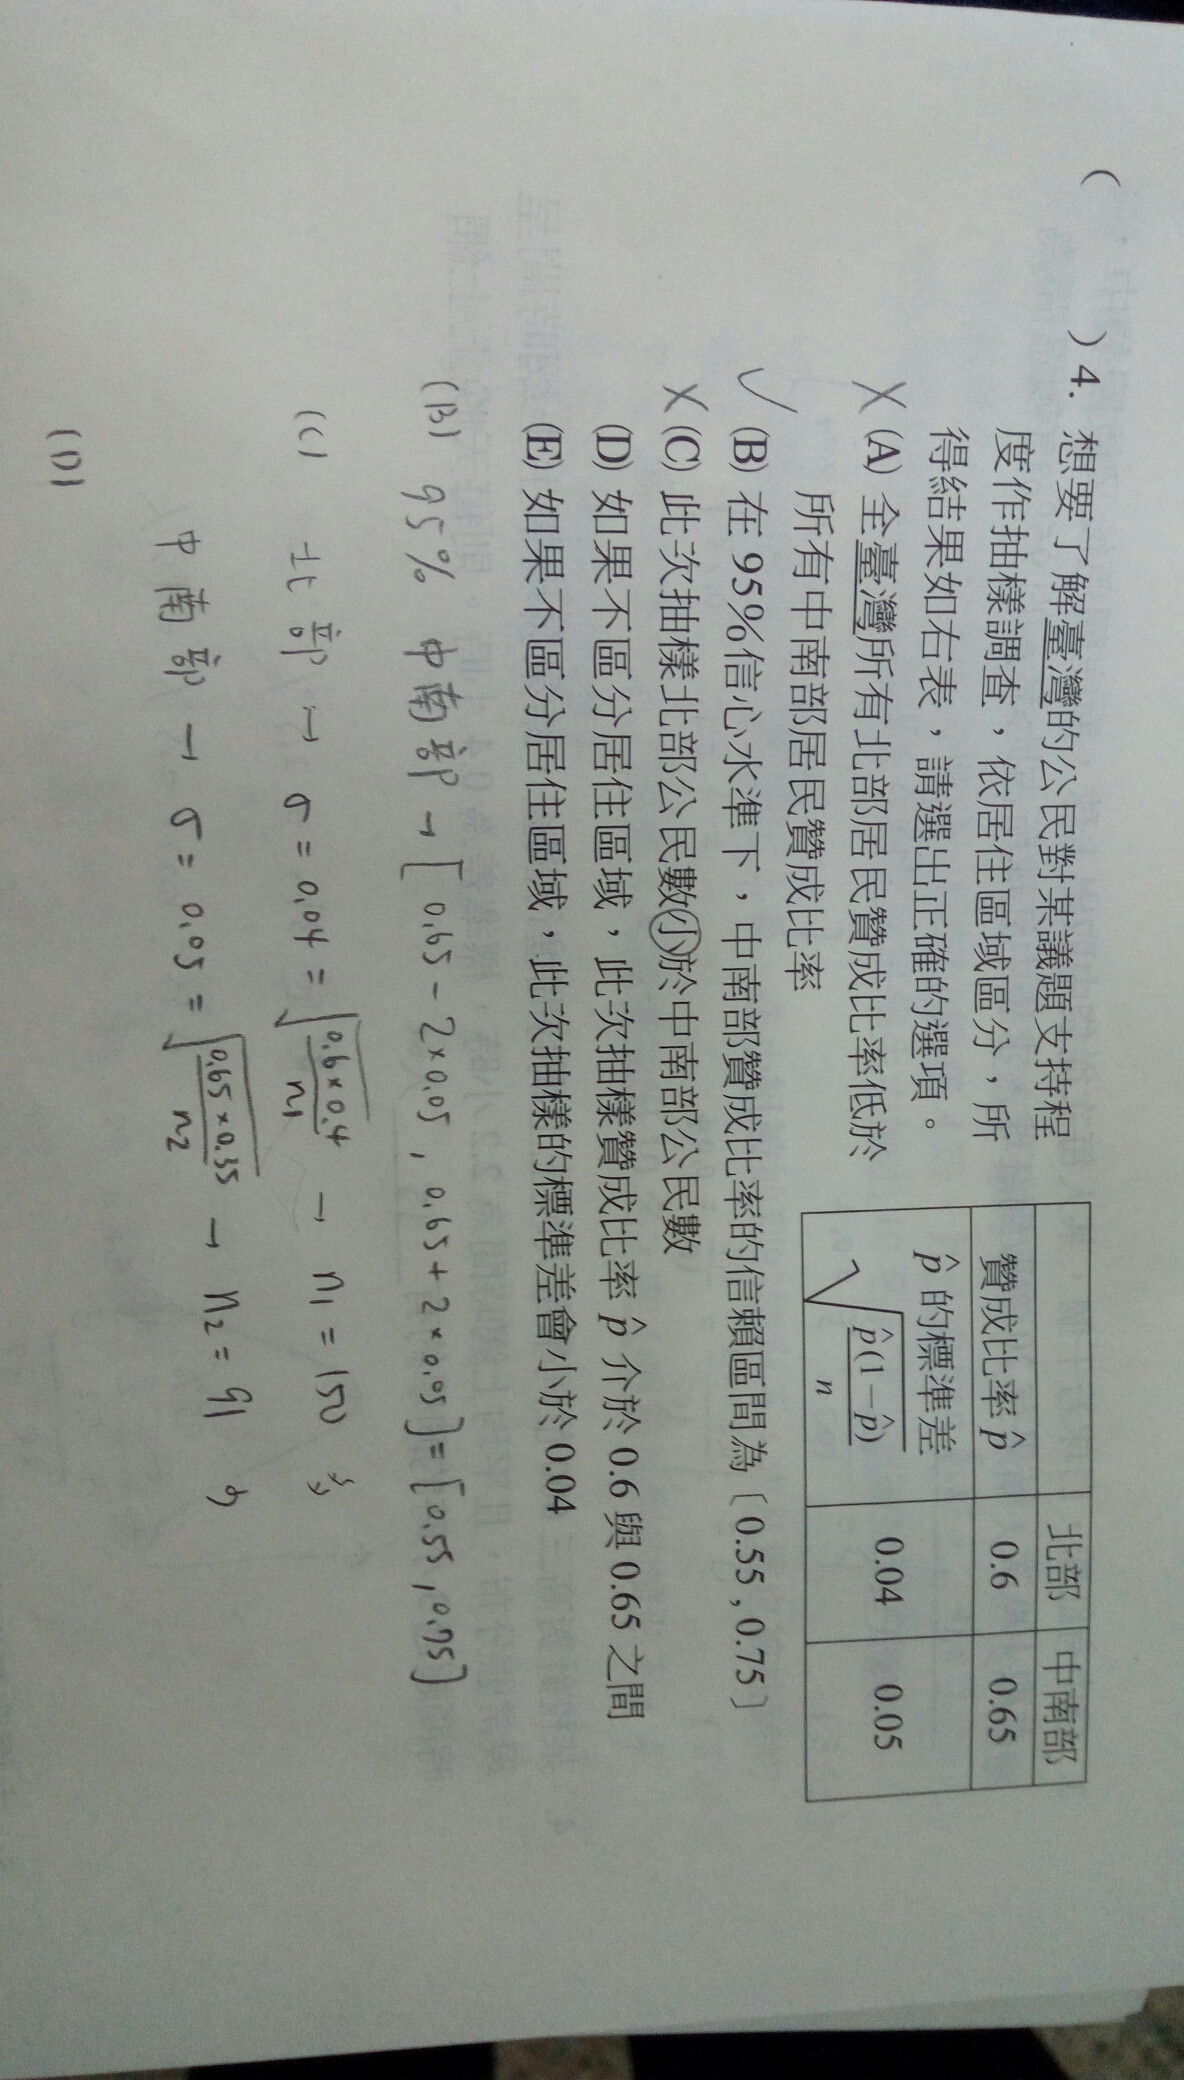 ( ) 4. 想要了解臺灣的公民對某議題支持程
度作抽樣調查，依居住區域區分，所
得結果如右表，請選出正確的選項。
北部 中南部
贊成比率 p̂ 0.6 0.65
p̂ 的標準差 √(p̂(1−p̂)/n) 0.04 0.05
X (A) 全臺灣所有北部居民贊成比率低於
所有中南部居民贊成比率
✓ (B) 在 95%信心水準下，中南部贊成比率的信賴區間為〔0.55 , 0.75〕
X (C) 此次抽樣北部公民數小於中南部公民數
(D) 如果不區分居住區域，此次抽樣贊成比率 p̂ 介於 0.6 與 0.65 之間
(E) 如果不區分居住區域，此次抽樣的標準差會小於 0.04
(B) 95% 中南部 → [0.65 - 2×0.05 , 0.65 + 2×0.05] = [0.55 , 0.75]
(C) 北部 → σ = 0.04 = √(0.6×0.4/n₁) → n₁ = 150 多
中南部 → σ = 0.05 = √(0.65×0.35/n₂) → n₂ = 91 少
(D)